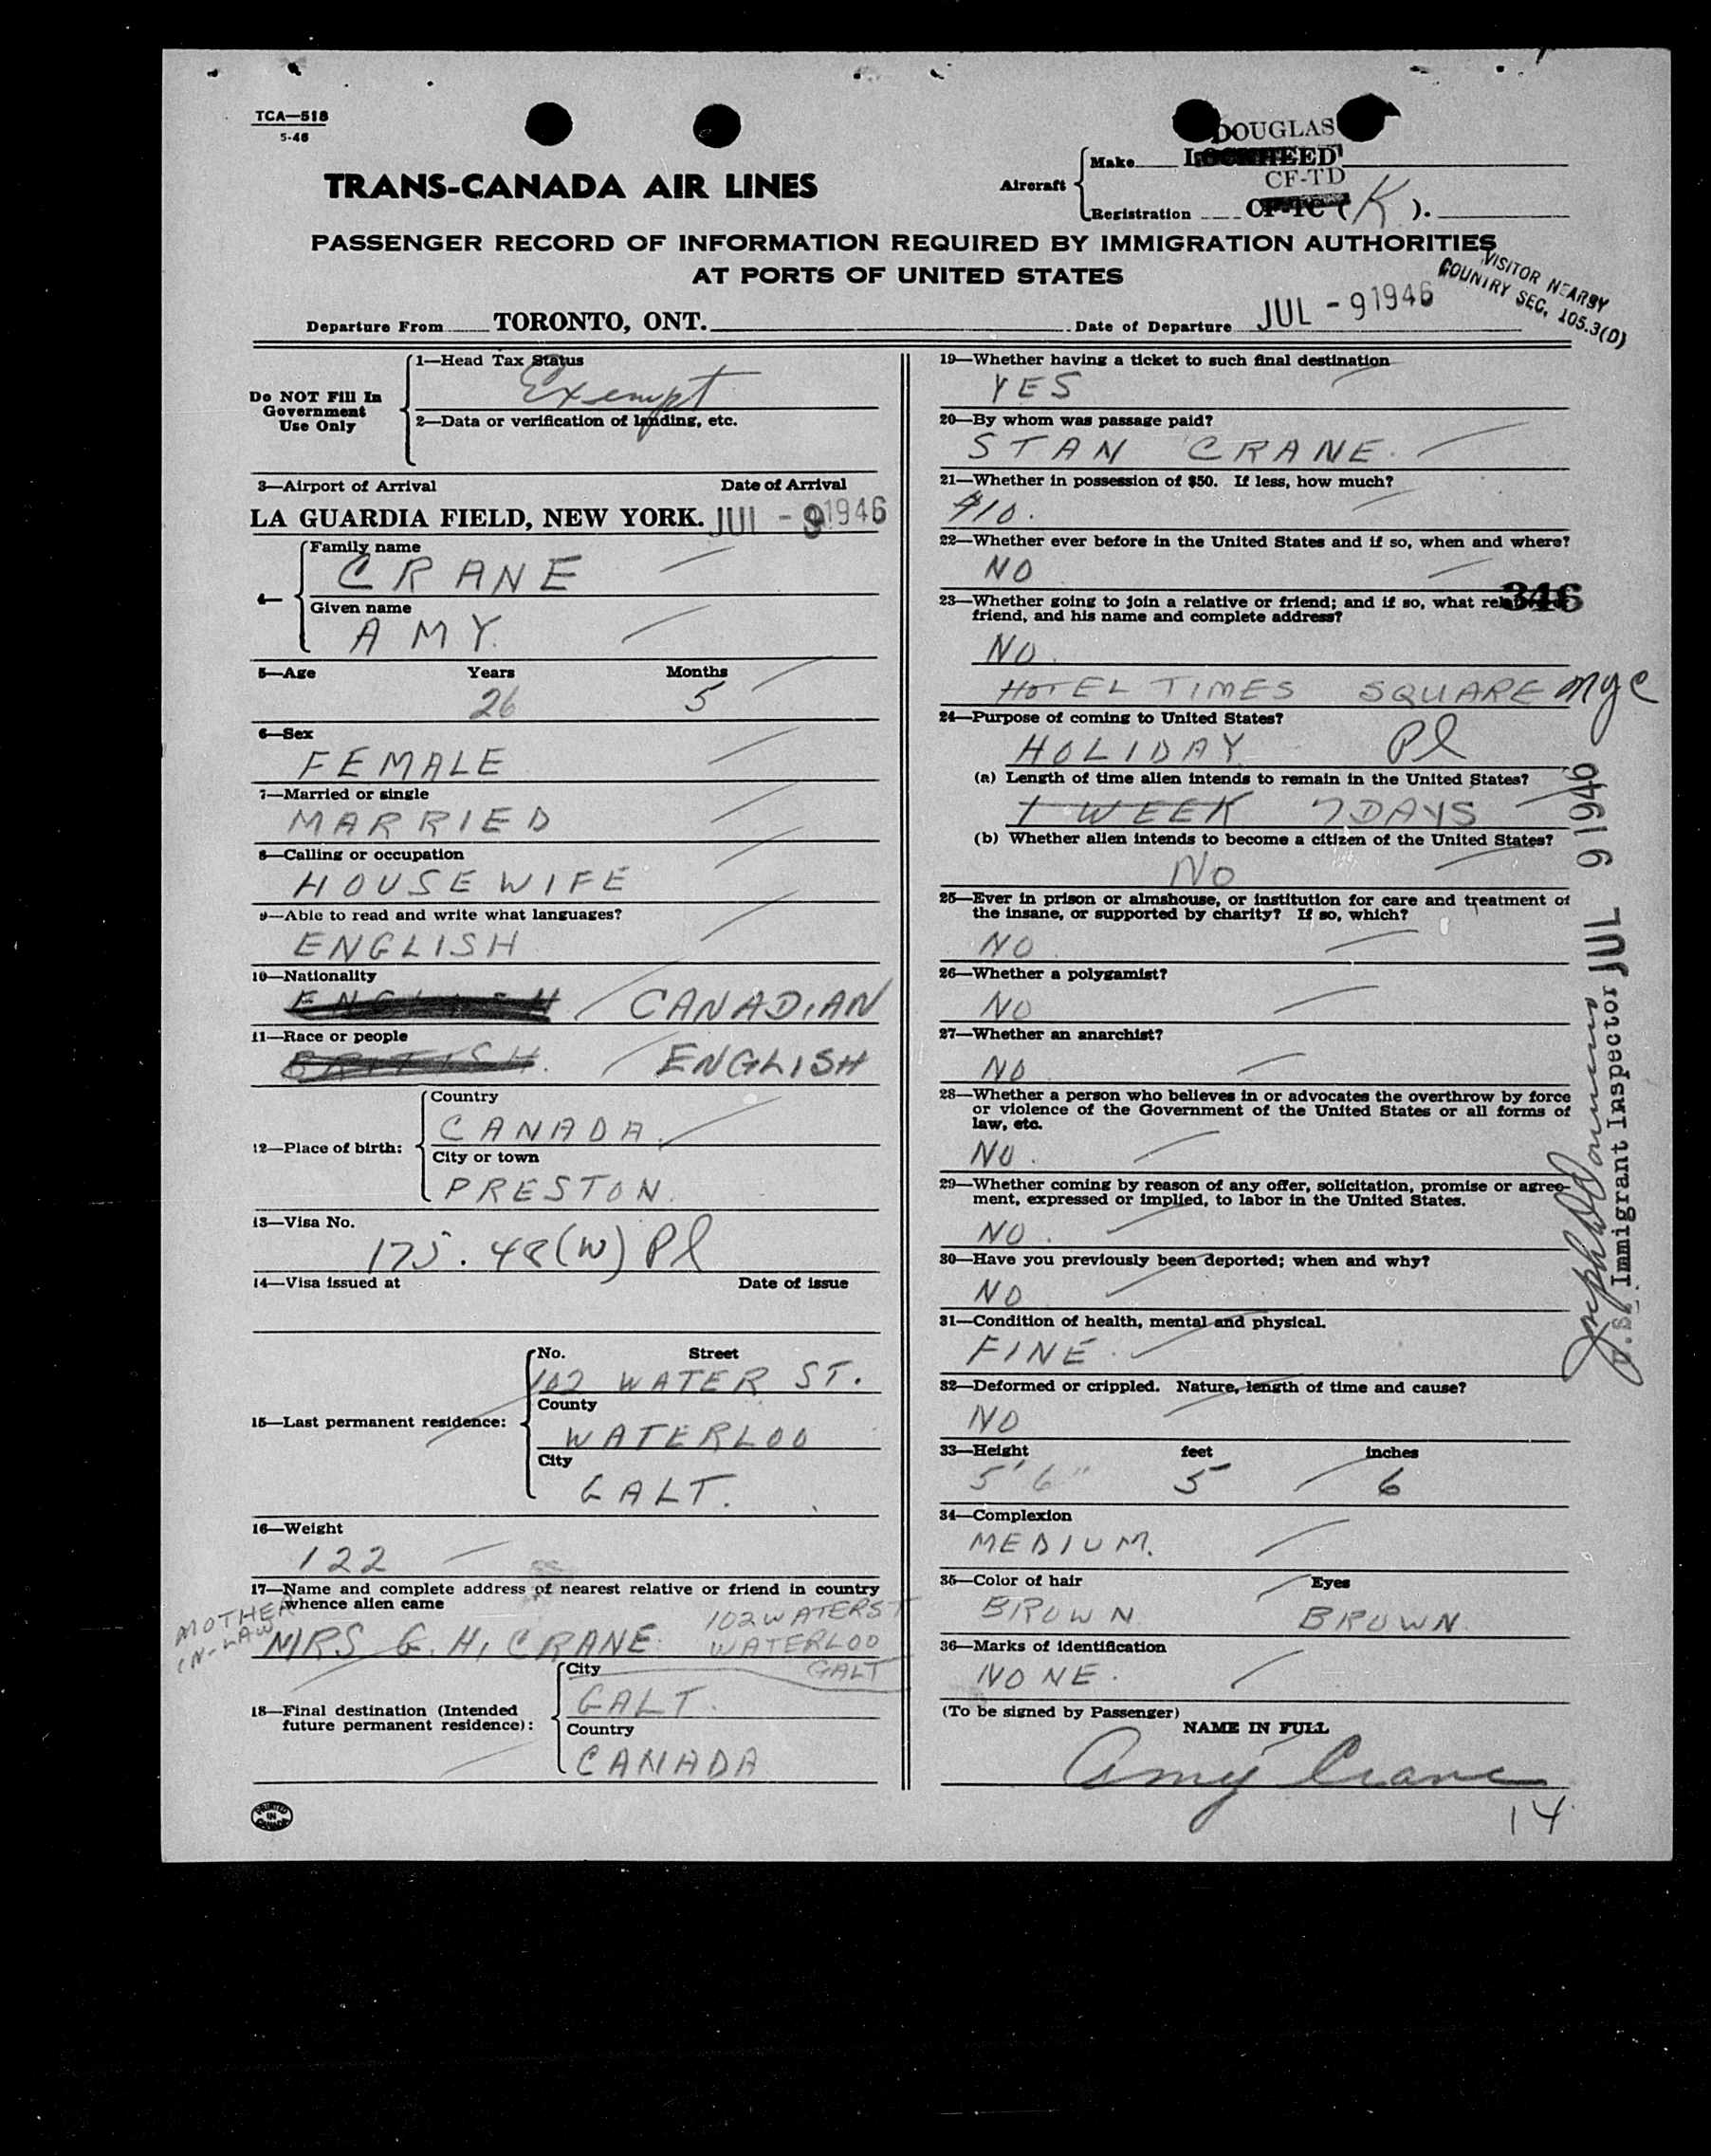 TCA—518
5-46
DOUGLAS
Make LOCKHEED
TRANS-CANADA AIR LINES
Aircraft
CF-TD
Registration CF-TC (K).
PASSENGER RECORD OF INFORMATION REQUIRED BY IMMIGRATION AUTHORITIES
AT PORTS OF UNITED STATES
VISITOR NEARBY
COUNTRY SEC. 105.3(D)
Departure From TORONTO, ONT. Date of Departure JUL - 9 1946
Do NOT Fill In
Government
Use Only
1—Head Tax Status
Exempt
2—Data or verification of landing, etc.
3—Airport of Arrival Date of Arrival
LA GUARDIA FIELD, NEW YORK. JUL - 9 1946
4—
Family name
CRANE
Given name
AMY.
5—Age Years Months
26 5
6—Sex
FEMALE
7—Married or single
MARRIED
8—Calling or occupation
HOUSEWIFE
9—Able to read and write what languages?
ENGLISH
10—Nationality
ENGLISH CANADIAN
11—Race or people
BRITISH. ENGLISH
12—Place of birth:
Country
CANADA.
City or town
PRESTON.
13—Visa No.
175.48(W) Pl
14—Visa issued at Date of issue
15—Last permanent residence:
No. Street
102 WATER ST.
County
WATERLOO
City
GALT.
16—Weight
122
17—Name and complete address of nearest relative or friend in country
whence alien came
MOTHER
IN-LAW
MRS G. H. CRANE.
102 WATER ST
WATERLOO
GALT
18—Final destination (Intended
future permanent residence):
City
GALT.
Country
CANADA
PRINTED
IN
CANADA
19—Whether having a ticket to such final destination
YES
20—By whom was passage paid?
STAN CRANE.
21—Whether in possession of $50. If less, how much?
$10.
22—Whether ever before in the United States and if so, when and where?
NO
346
23—Whether going to join a relative or friend; and if so, what relative or
friend, and his name and complete address?
NO.
HOTEL TIMES SQUARE nyc
24—Purpose of coming to United States?
HOLIDAY Pl
(a) Length of time alien intends to remain in the United States?
1 WEEK 7 DAYS
(b) Whether alien intends to become a citizen of the United States?
NO
25—Ever in prison or almshouse, or institution for care and treatment of
the insane, or supported by charity? If so, which?
NO
26—Whether a polygamist?
NO
27—Whether an anarchist?
NO
28—Whether a person who believes in or advocates the overthrow by force
or violence of the Government of the United States or all forms of
law, etc.
NO.
29—Whether coming by reason of any offer, solicitation, promise or agree-
ment, expressed or implied, to labor in the United States.
NO.
30—Have you previously been deported; when and why?
NO
31—Condition of health, mental and physical.
FINE.
32—Deformed or crippled. Nature, length of time and cause?
NO
33—Height feet inches
5'6" 5 6
34—Complexion
MEDIUM.
35—Color of hair Eyes
BROWN BROWN.
36—Marks of identification
NONE.
(To be signed by Passenger)
NAME IN FULL
Amy Crane
14
U.S. Immigrant Inspector JUL 9 1946